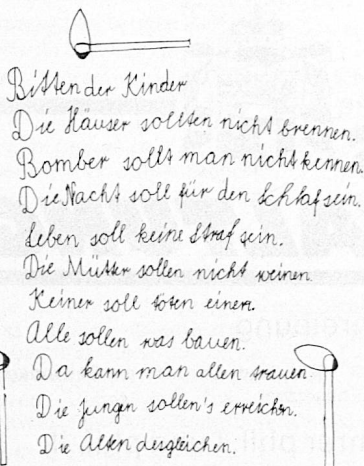 Bitten der Kinder
Die Häuser sollten nicht brennen.
Bomber sollt man nicht kennen.
Die Nacht soll für den Schlaf sein.
Leben soll keine Straf sein.
Die Mütter sollen nicht weinen.
Keiner soll töten einen.
Alle sollen was bauen.
Da kann man allen trauen.
Die Jungen sollen's erreichen.
Die Alten desgleichen.